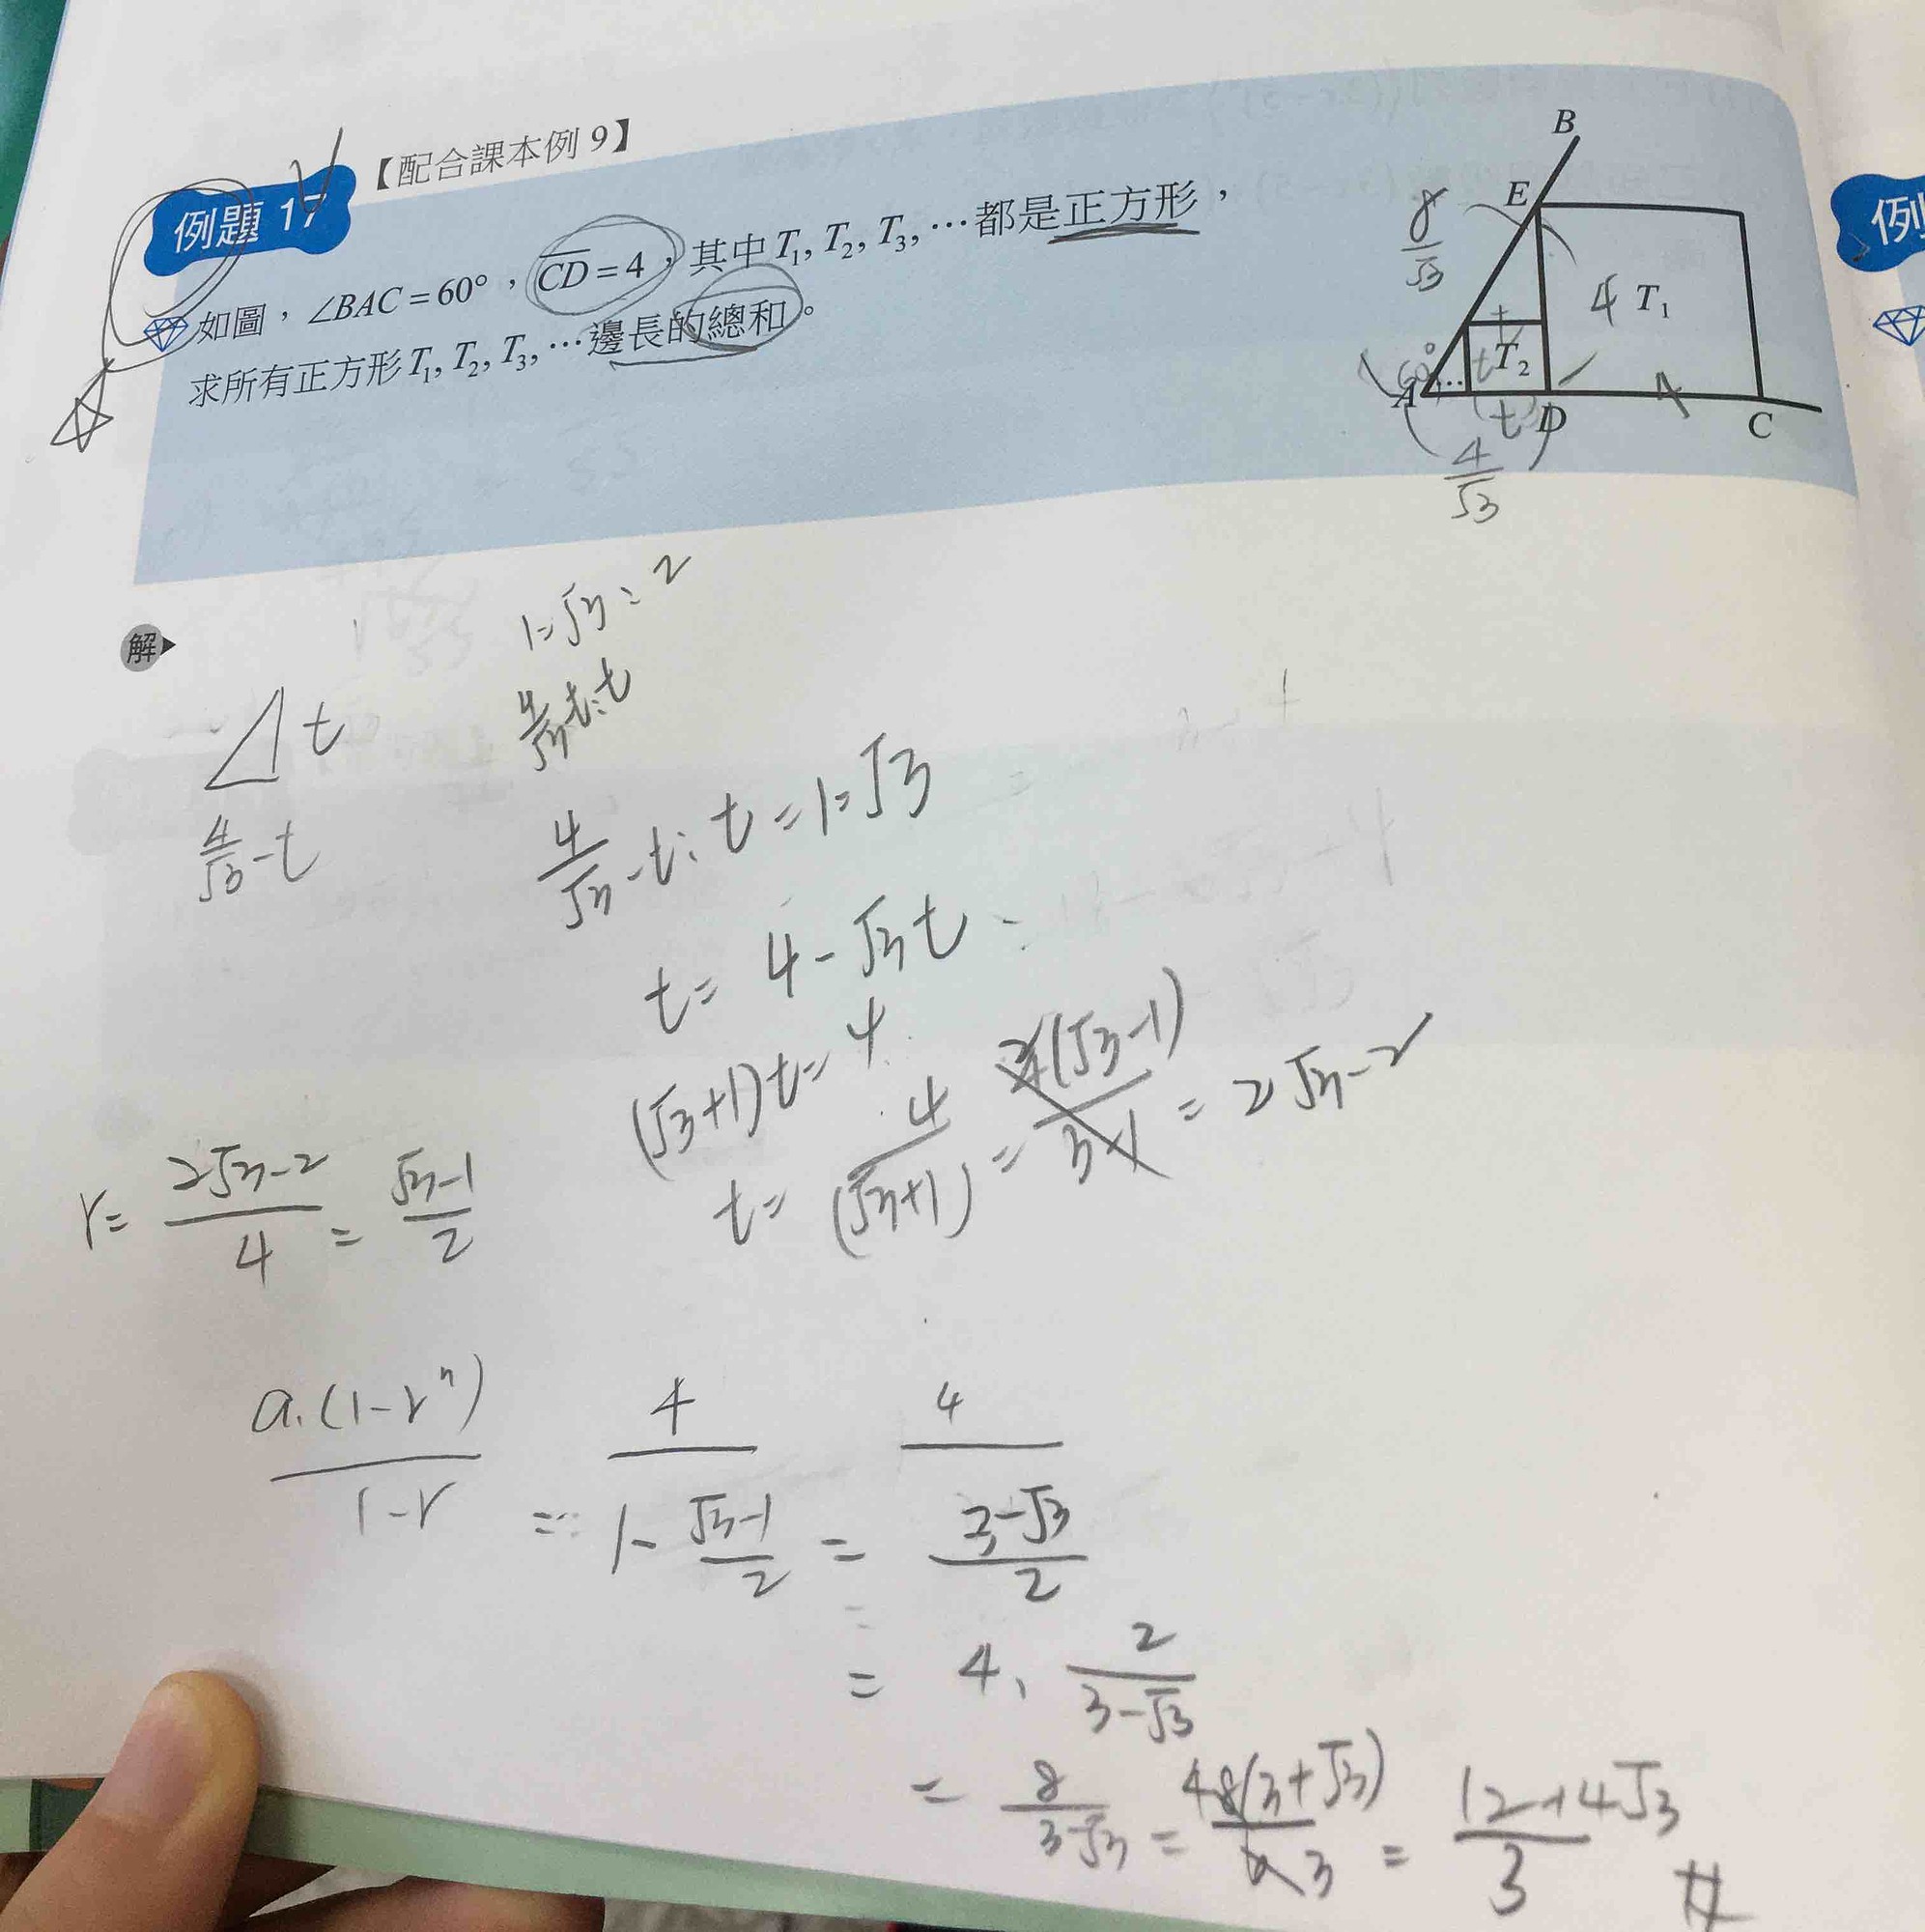 【配合課本例 9】
例題 17
如圖，∠BAC = 60°，CD = 4，其中 T₁, T₂, T₃, … 都是正方形，
求所有正方形 T₁, T₂, T₃, … 邊長的總和。
B
E
8/√3
4 T₁
t
60°
… t T₂
A
t D
4
C
4/√3
例
解
1:√3:2
t
4/√3-t:t
4/√3-t
4/√3-t:t=1:√3
t=4-√3t
(√3+1)t=4
t=4/(√3+1)=4(√3-1)/3-1=2√3-2
r=2√3-2/4=√3-1/2
a₁(1-rⁿ)/1-r=4/1-√3-1/2=4/3-√3/2
=4·2/3-√3
=8/3-√3=48(3+√3)/6 3=12+4√3/3 #